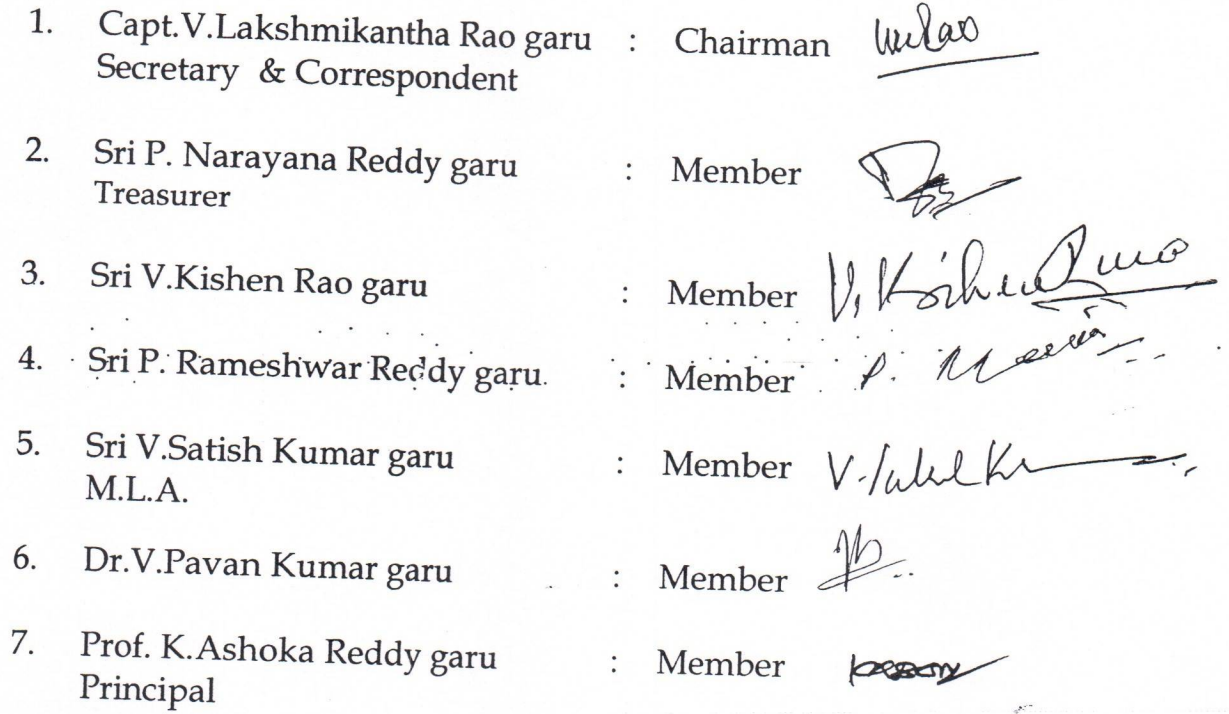 1. Capt.V.Lakshmikantha Rao garu : Chairman
Secretary & Correspondent
2. Sri P. Narayana Reddy garu : Member
Treasurer
3. Sri V.Kishen Rao garu : Member V. Kishen Rao
4. Sri P. Rameshwar Reddy garu : Member P.
5. Sri V.Satish Kumar garu : Member V.
M.L.A.
6. Dr.V.Pavan Kumar garu : Member
7. Prof. K.Ashoka Reddy garu : Member
Principal